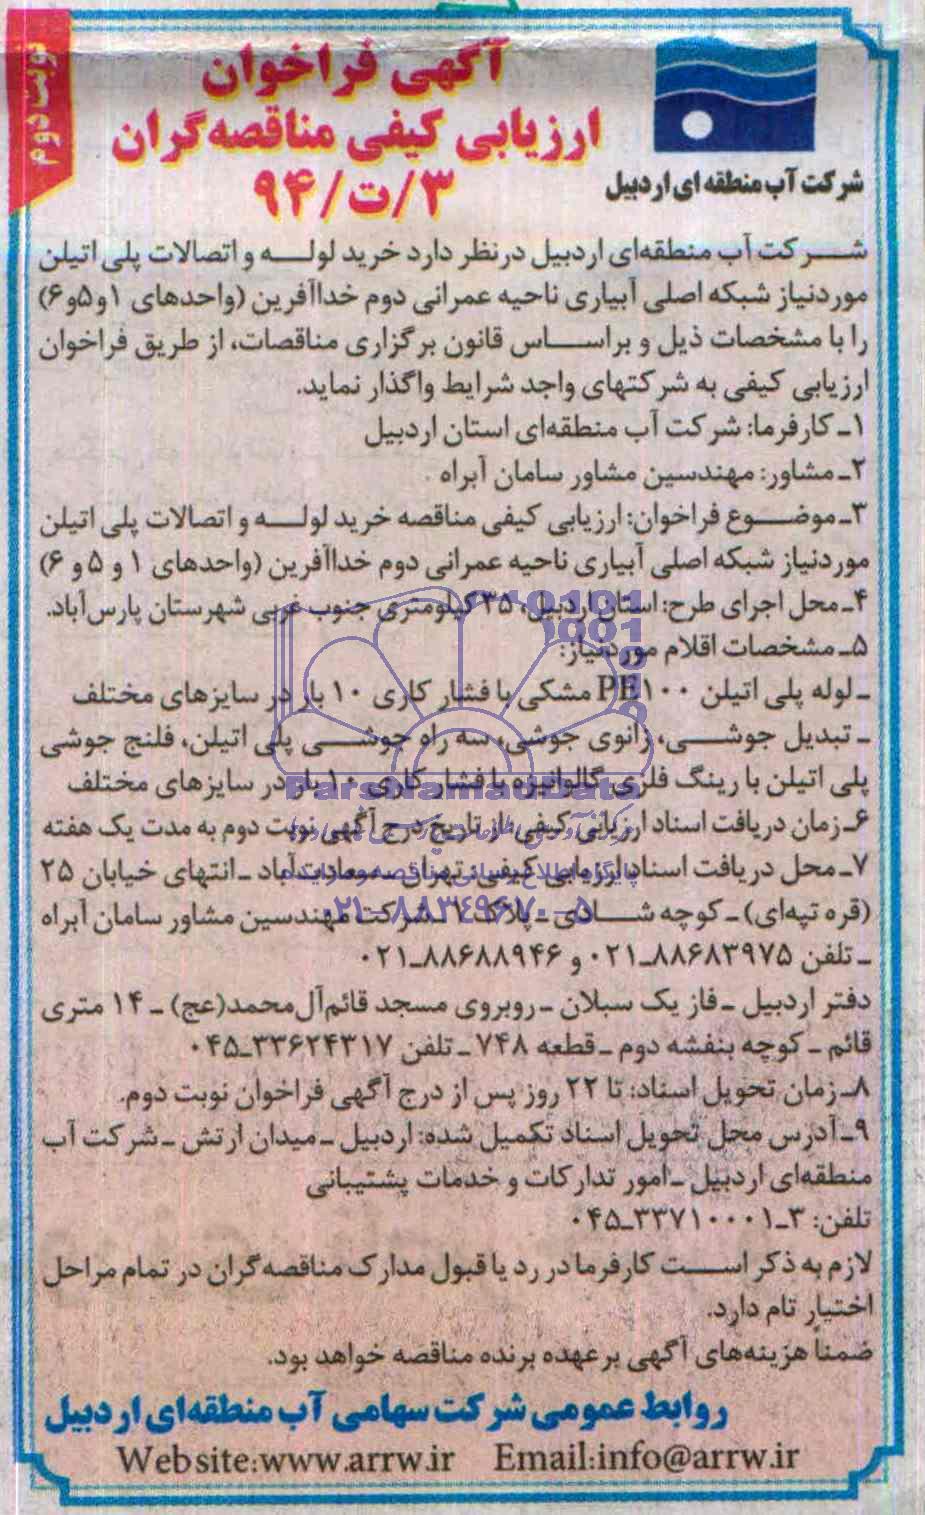 نوبت دوم
آگهی فراخوان
ارزیابی کیفی مناقصه‌گران
۹۴/ت/۳
شرکت آب منطقه ای اردبیل
شرکت آب منطقه‌ای اردبیل درنظر دارد خرید لوله و اتصالات پلی اتیلن
موردنیاز شبکه اصلی آبیاری ناحیه عمرانی دوم خداآفرین (واحدهای ۱و۵و۶)
را با مشخصات ذیل و براساس قانون برگزاری مناقصات، از طریق فراخوان
ارزیابی کیفی به شرکتهای واجد شرایط واگذار نماید.
۱ـ کارفرما: شرکت آب منطقه‌ای استان اردبیل
۲ـ مشاور: مهندسین مشاور سامان آبراه
۳ـ موضوع فراخوان: ارزیابی کیفی مناقصه خرید لوله و اتصالات پلی اتیلن
موردنیاز شبکه اصلی آبیاری ناحیه عمرانی دوم خداآفرین (واحدهای ۱ و ۵ و ۶)
۴ـ محل اجرای طرح: استان اردبیل، ۳۵ کیلومتری جنوب غربی شهرستان پارس‌آباد.
۵ـ مشخصات اقلام موردنیاز:
ـ لوله پلی اتیلن PE۱۰۰ مشکی با فشار کاری ۱۰ بار در سایزهای مختلف
ـ تبدیل جوشی، زانوی جوشی، سه راه جوشی پلی اتیلن، فلنج جوشی
پلی اتیلن با رینگ فلزی گالوانیزه با فشار کاری ۱۰ بار در سایزهای مختلف
ParsNamadData
۶ـ زمان دریافت اسناد ارزیابی کیفی: از تاریخ درج آگهی نوبت دوم به مدت یک هفته
۷ـ محل دریافت اسناد ارزیابی کیفی: تهران ـ سعادت‌آباد ـ انتهای خیابان ۲۵
پایگاه اطلاع رسانی مناقصه و مزایده
(قره تپه‌ای) ـ کوچه شادی ـ پلاک ۱ ـ شرکت مهندسین مشاور سامان آبراه
۰۲۱-۸۸۳۴۹۶۷۰-۵
ـ تلفن ۸۸۶۸۳۹۷۵ـ۰۲۱ و ۸۸۶۸۸۹۴۶ـ۰۲۱
دفتر اردبیل ـ فاز یک سبلان ـ روبروی مسجد قائم‌آل‌محمد(عج) ـ ۱۴ متری
قائم ـ کوچه بنفشه دوم ـ قطعه ۷۴۸ ـ تلفن ۳۳۶۲۴۳۱۷ـ۰۴۵
۸ـ زمان تحویل اسناد: تا ۲۲ روز پس از درج آگهی فراخوان نوبت دوم.
۹ـ آدرس محل تحویل اسناد تکمیل شده: اردبیل ـ میدان ارتش ـ شرکت آب
منطقه‌ای اردبیل ـ امور تدارکات و خدمات پشتیبانی
تلفن: ۳ـ۳۳۷۱۰۰۰۱ـ۰۴۵
لازم به ذکر است کارفرما در رد یا قبول مدارک مناقصه‌گران در تمام مراحل
اختیار تام دارد.
ضمناً هزینه‌های آگهی برعهده برنده مناقصه خواهد بود.
روابط عمومی شرکت سهامی آب منطقه‌ای اردبیل
Website:www.arrw.ir Email:info@arrw.ir